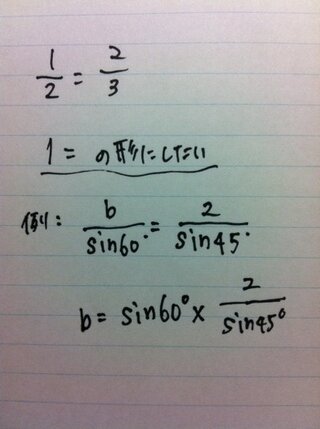 1/2 = 2/3
1 = の形にしたい
例: b/sin60° = 2/sin45°
b = sin60° × 2/sin45°